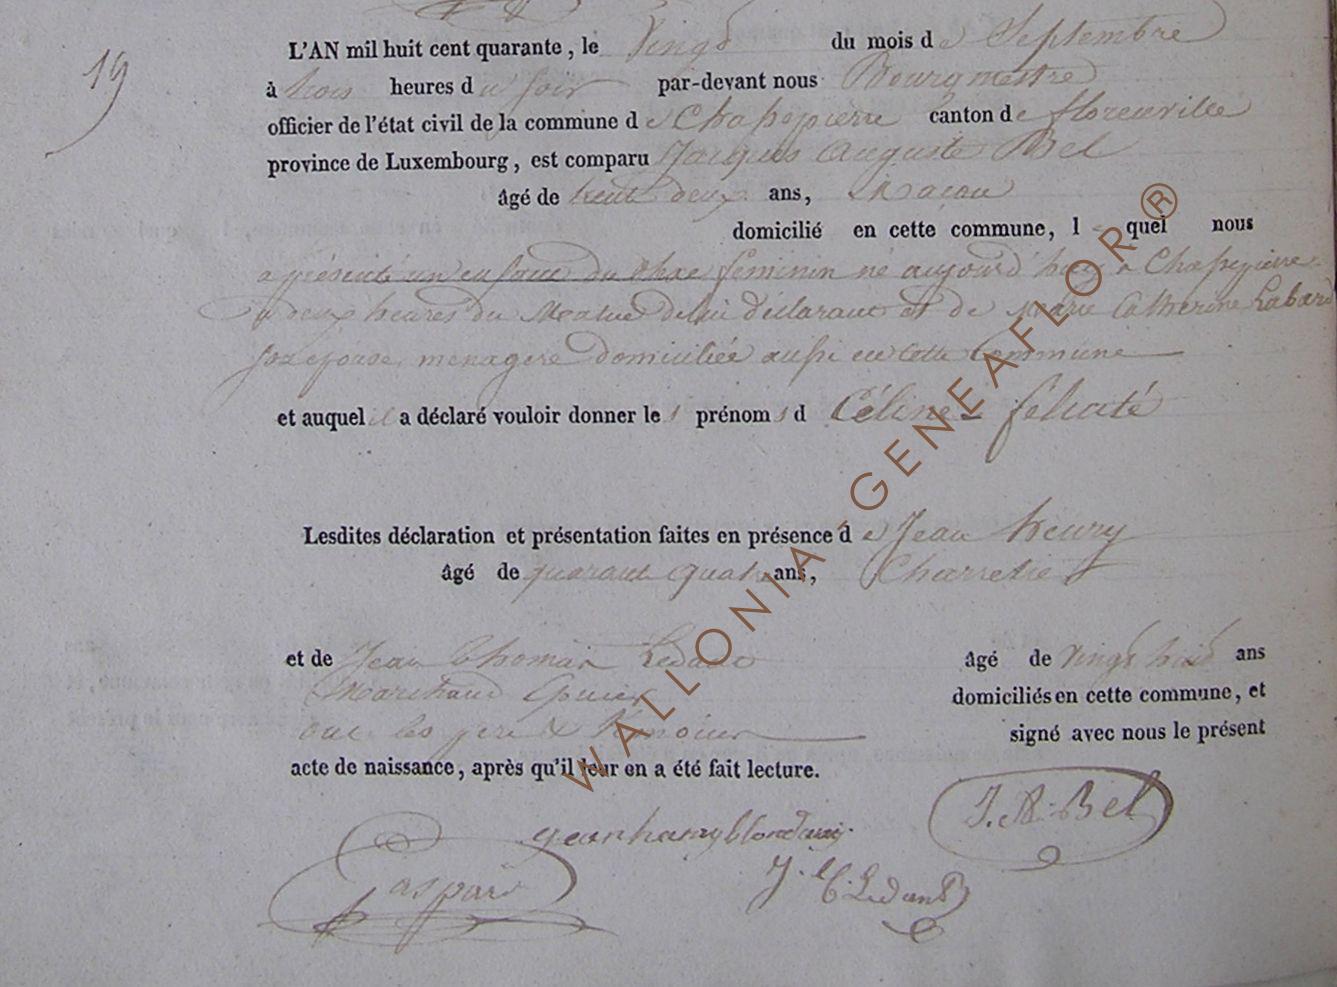 19
L'AN mil huit cent quarante, le Vingt du mois de Septembre
à trois heures du soir par-devant nous Bourgmestre
officier de l'état civil de la commune de Chassepierre canton de florenville
province de Luxembourg, est comparu Jacques Auguste Bel
âgé de trente deux ans, Macon
domicilié en cette commune, lequel nous
a présenté un enfant du sexe féminin né aujourd'huy à Chassepierre
à deux heures du Matin de lui déclarant et de Marie Catherine Labard
son epouse, menagere domiciliée aussi en cette Commune
et auquel il a déclaré vouloir donner les prénoms d Céline félicité
Lesdites déclaration et présentation faites en présence de Jean henry
âgé de quarant quatre ans, Charretier
et de Jean Thomas Ledant âgé de Vingt huit ans
Marchand domiciliés en cette commune, et
ont les père & témoins signé avec nous le présent
acte de naissance, après qu'il leur en a été fait lecture.
J. A. Bel
jean hanry
gaspard
J. T. Ledant
WALLONIA GENEAFLOR ®